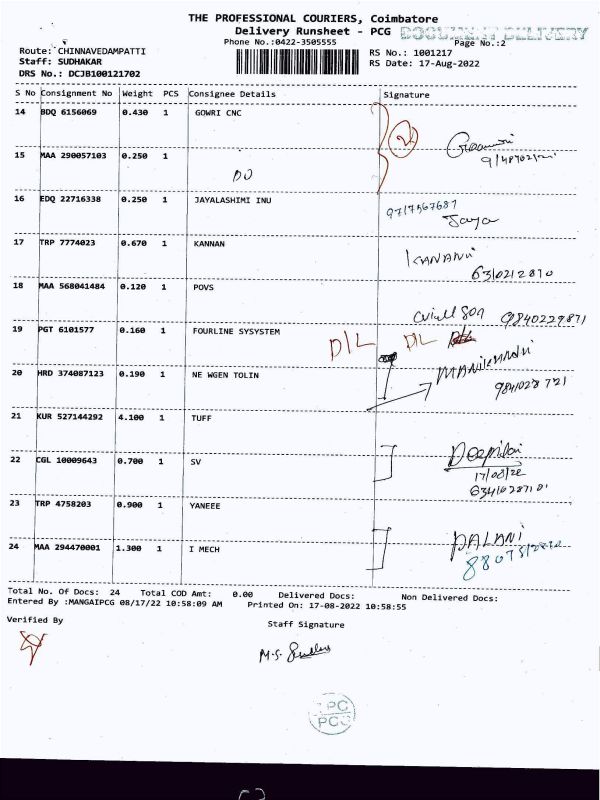 THE PROFESSIONAL COURIERS, Coimbatore
Delivery Runsheet - PCG DOCUMENT DELIVERY
Phone No.:0422-3505555 Page No.:2
Route: CHINNAVEDAMPATTI RS No.: 1001217
Staff: SUDHAKAR RS Date: 17-Aug-2022
DRS No.: DCJB100121702
S No Consignment No Weight PCS Consignee Details Signature
14 BDQ 6156069 0.430 1 GOWRI CNC
2
15 MAA 290057103 0.250 1
DO
16 EDQ 22716338 0.250 1 JAYALASHIMI INU 9717567687
Jaya
17 TRP 7774023 0.670 1 KANNAN KANANN
6310212810
18 MAA 568041484 0.120 1 POVS
9840229871
19 PGT 6101577 0.160 1 FOURLINE SYSYSTEM D/L D/L
20 HRD 374087123 0.190 1 NE WGEN TOLIN
9841028721
21 KUR 527144292 4.100 1 TUFF
22 CGL 10009643 0.700 1 SV
17/08/22
23 TRP 4758203 0.900 1 YANEEE
24 MAA 294470001 1.300 1 I MECH PALANI
Total No. Of Docs: 24 Total COD Amt: 0.00 Delivered Docs: Non Delivered Docs:
Entered By :MANGAIPCG 08/17/22 10:58:09 AM Printed On: 17-08-2022 10:58:55
Verified By
Staff Signature
M.S.
PC
PCG